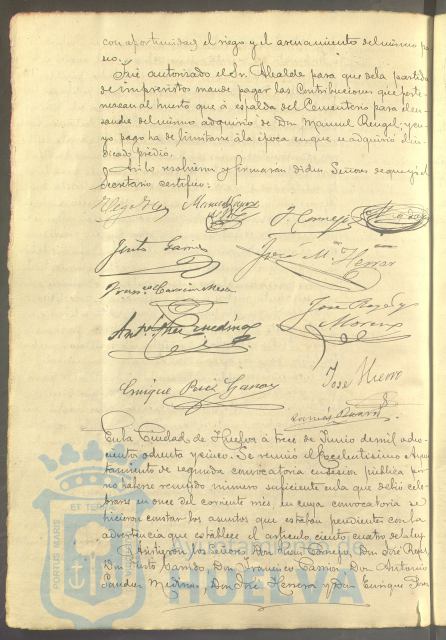 con oportunidad el riego y el arenamiento del mismo pa
seo.
Fué autorizado el Sr. Alcalde para que de la partida
de imprevistos mande pagar las contribuciones que perte
nezcan al huerto que á espalda del Cementerio para el en
sanche del mismo adquirió de Don Manuel Rengel; y cu
yo pago ha de limitarse á la época en que se adquirió el in
dicado predio.
Así lo resolvieron y firmarán dichos Señores de que yo el
Secretario certifico:
J. Cornejo
Justo Garrido
José Mª Herrera
Franco. Carrión Mesa
José Rey y
Moreno
Antº Sánchez Medina
Enrique Ruiz
José Hierro
Tomás
En la Ciudad de Huelva á trece de Junio de mil ocho
cientos ochenta y cinco. Se reunió el Excelentísimo Ayun
tamiento de segunda convocatoria en sesión pública por
no haberse reunido número suficiente en la que debió cele
brarse en once del corriente mes en cuya convocatoria se
hicieron constar los asuntos que estaban pendientes con la
advertencia que establece el artículo ciento cuatro de la ley.
Asistieron los Señores Don Juan Cornejo, Don José Rey,
Don Justo Garrido, Don Francisco Carrión, Don Antonio
Sánchez Medina, Don José Herrera y Don Enrique
PORTUS MARIS
ET TERRAE
Ayuntamiento de
HUELVA